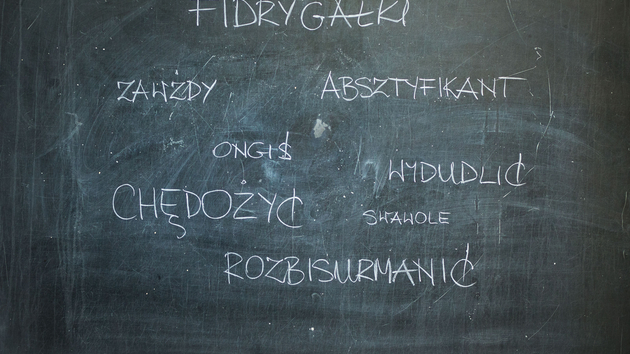 FIDRYGAŁKI
ZAWŻDY
ABSZTYFIKANT
ONGIŚ
WYDUDLIĆ
CHĘDOŻYĆ
SWAWOLE
ROZBISURMANIĆ